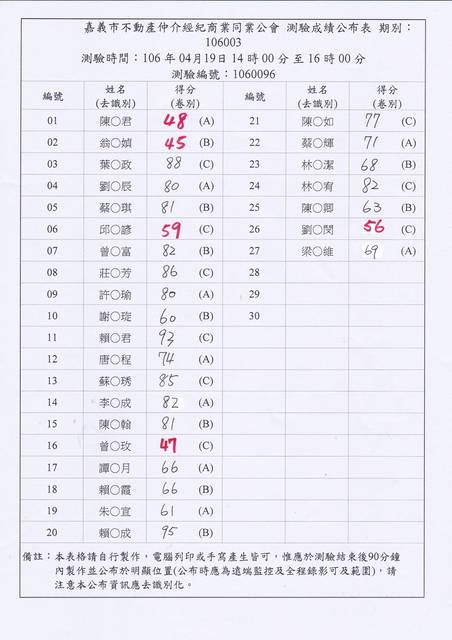 嘉義市不動產仲介經紀商業同業公會 測驗成績公布表 期別：
106003
測驗時間：106 年 04月19日 14 時 00 分 至 16 時 00 分
測驗編號：1060096
編號 姓名(去識別) 得分(卷別) 編號 姓名(去識別) 得分(卷別)
01 陳○君 48 (A) 21 陳○如 77 (C)
02 翁○媜 45 (B) 22 蔡○輝 71 (A)
03 葉○政 88 (C) 23 林○潔 68 (B)
04 劉○辰 80 (A) 24 林○宥 82 (C)
05 蔡○琪 81 (B) 25 陳○卿 63 (B)
06 邱○諺 59 (C) 26 劉○閔 56 (C)
07 曾○富 82 (B) 27 梁○維 69 (A)
08 莊○芳 86 (C) 28
09 許○瑜 80 (A) 29
10 謝○琁 60 (B) 30
11 賴○君 93 (C)
12 唐○程 74 (A)
13 蘇○琇 85 (C)
14 李○成 82 (A)
15 陳○翰 81 (B)
16 曾○玫 47 (C)
17 譚○月 66 (A)
18 賴○霞 66 (B)
19 朱○宣 61 (A)
20 賴○成 95 (B)
備註：本表格請自行製作，電腦列印或手寫產生皆可，惟應於測驗結束後90分鐘
內製作並公布於明顯位置(公布時應為遠端監控及全程錄影可及範圍)，請
注意本公布資訊應去識別化。